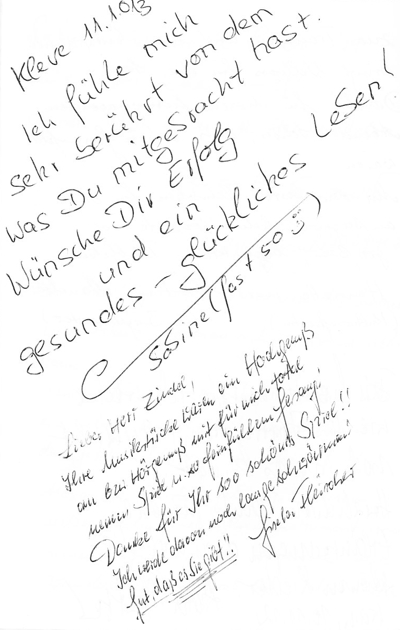 Kleve 11.10/3
Ich fühle mich
sehr berührt von dem
was Du mitgebracht hast.
Wünsche Dir Erfolg
und ein
gesundes - glückliches Leben!
Sabine (fast so ☺)
Lieber Herr Zindel,
Ihre Musikstücke waren ein Hochgenuß
mit für mich
Spiel u. so Gesang!
Danke für Ihr soo schönes Spiel!!
Ich werde davon noch lange schwärmen!
Gut, daß es Sie gibt!!